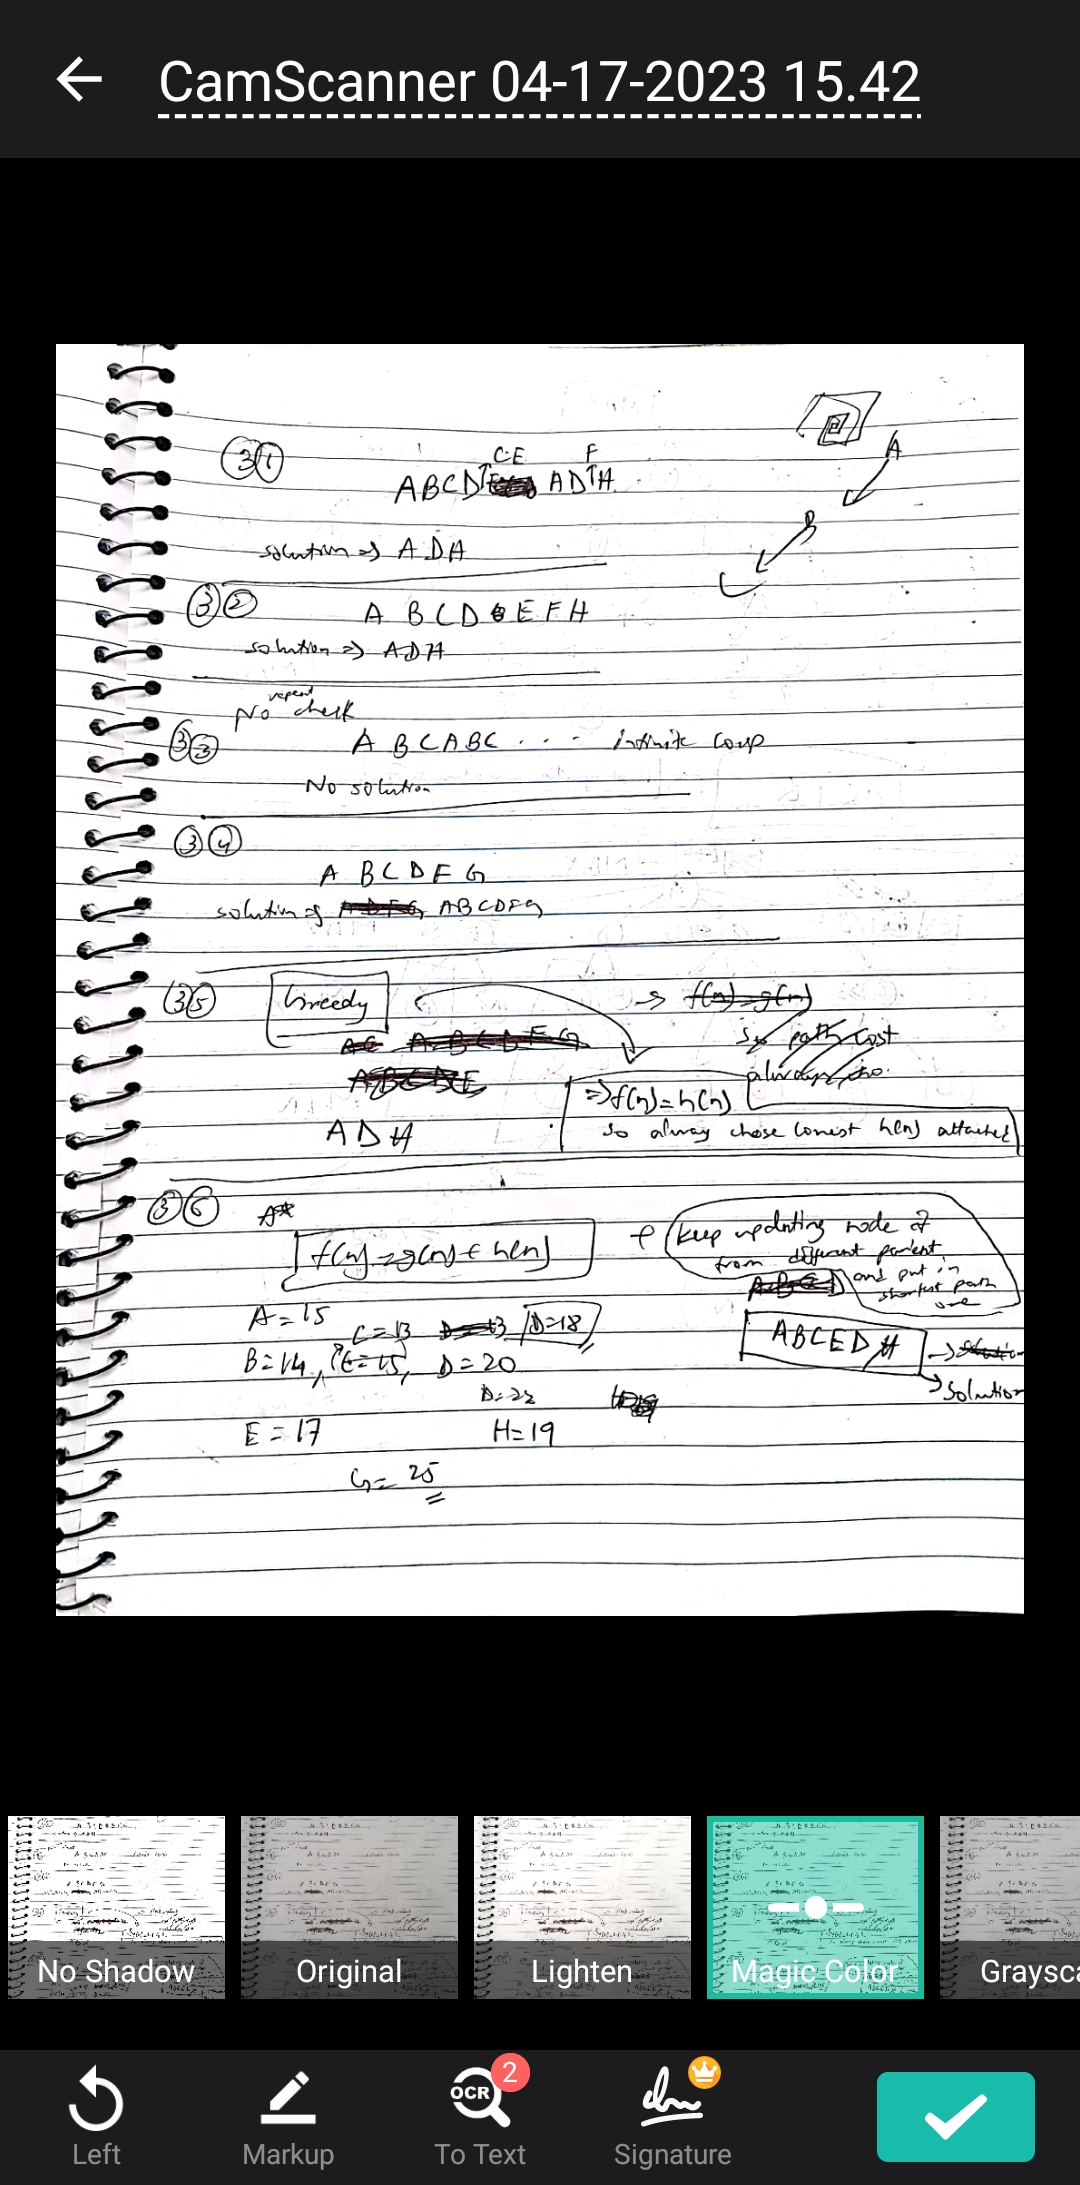 CamScanner 04-17-2023 15.42
3 1
C E F
ABCD ADH
A
solution ⇒ ADA
B
C
3 2
A B C D E F H
solution ⇒ ADH
repeat
No check
3 3
A B C A B C . . . - infinite loop
No solution
3 4
A B C D F G
solution ⇒ ABCDFG
3 5
Greedy
→ f(n)=g(n)
path cost
⇒ f(n)=h(n)
so always chose lowest h(n) attached
ADH
3 6 A*
f(n)=g(n)+h(n)
keep updating node if
from different parent,
and put in
shortest path
one
A=15
C=13 D=18
B=14, E=15, D=20
ABCED H
→ Solution
D=22
E=17 H=19
G= 25
No Shadow
Original
Lighten
Magic Color
Graysca
Left
Markup
OCR
2
To Text
Signature